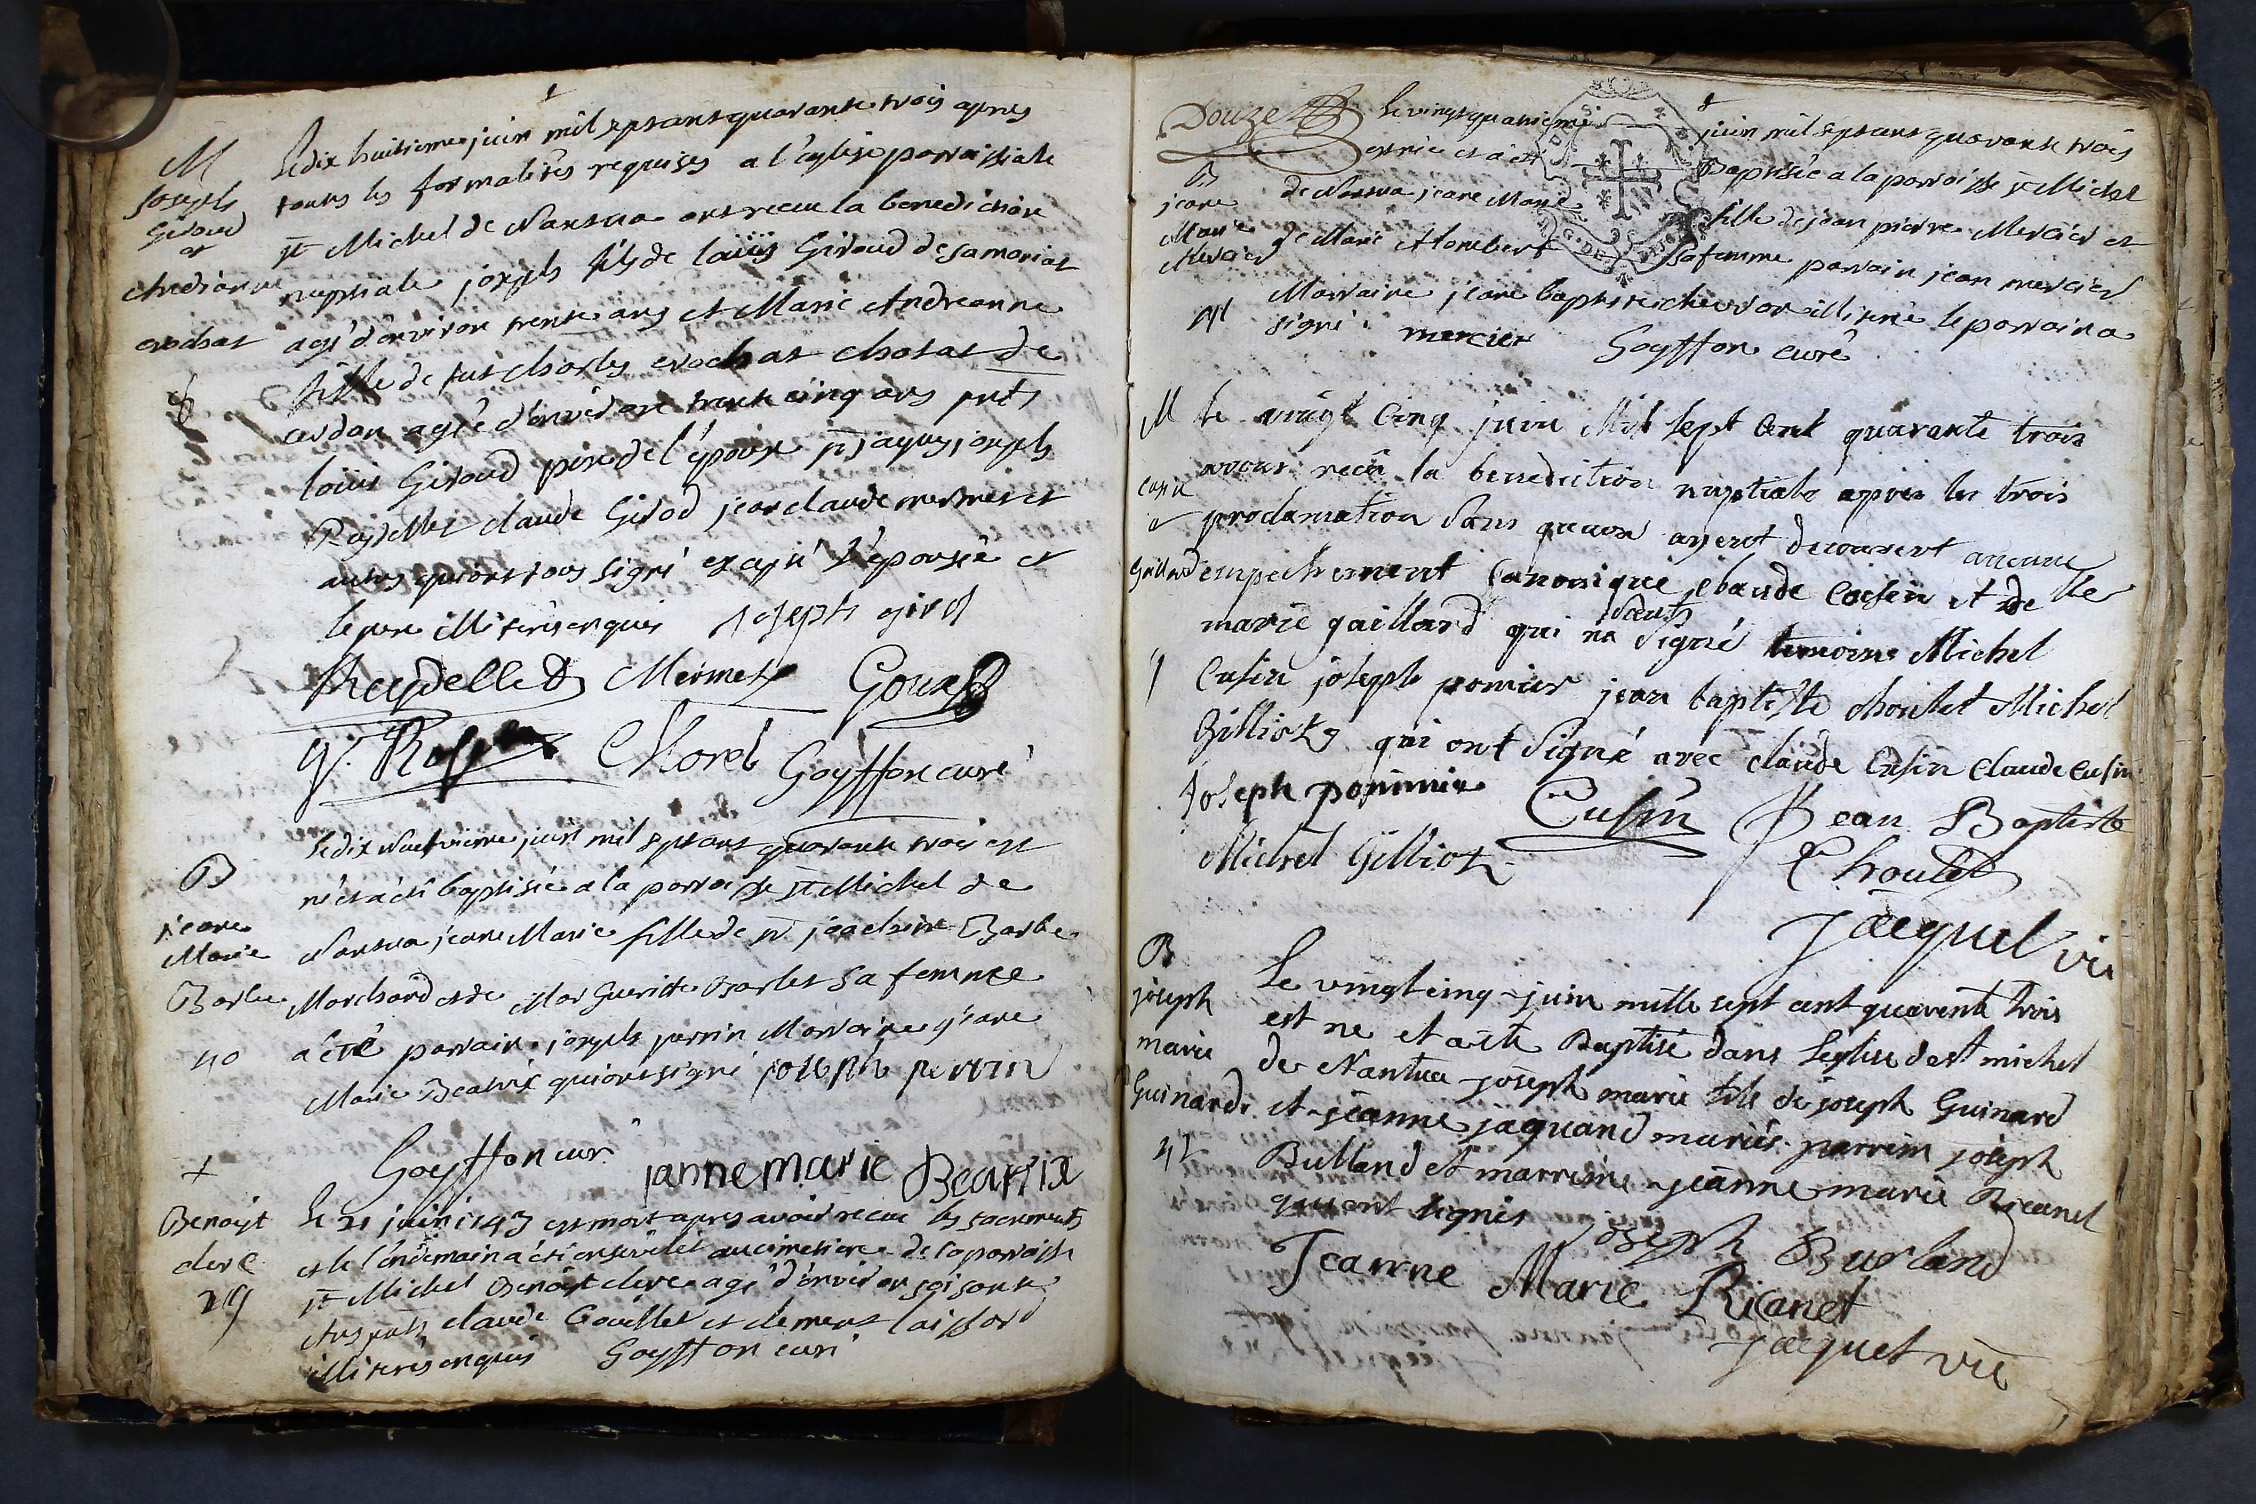 M
Joseph
Giroud
et
Andreanne
crochat
6
Le dix huitieme juin mil septcent quarante trois apres
toutes les formalités requises a l'eglise parroissiale
st Michel de Nantua ont receu la benediction
nuptiale joseph fils de loüis Giroud de samoniat
agé d'environ trente ans et Marie Andreanne
fille de fut charles crochat chosat de
cerdon agée d'environ trente cinq ans pnts
loüis Giroud pere de l'époux sr jaques joseph
Reydellet claude Girod jean claude mermet et
autres qui ont tous signé excepté l'épousée et
le pere illiterés enquis joseph girod
Reydellet Mermet Gouz
Morel Goyffon curé
B
jeane
Marie
Barbe
40
Le dix neufvieme juin mil septcent quarante trois est
née et a été baptisée a la parroisse st Michel de
Nantua jeane Marie fille de sr joachim Barbe
Marchand et de Marguerite Barlet sa femme
a été parrain joseph perrin Marraine jeane
Marie Beatrix qui ont signé joseph perrin
Goyffon curé janne marie Beatrix
+
Benoist
clerc
29
Le 21 juin 1743 est mort apres avoir receu les sacrements
et le l'endemain a été enseveli au cimetiere de la parroisse
st Michel Benoist clerc agé d'environ soisante
Ans pnts claude Goüillet et clement laissard
illiterés enquis Goyffon curé
Douze
B
jeane
Marie
Mercier
41
Le vingt quatrieme juin mil septcent quarante trois
est née et a été Baptisée a la parroisse st Michel
de Nantua jeane Marie fille de jean pierre Mercier et
de Marie Alombert sa femme parrain jean mercier
Marraine jeane baptiste chevron illiterée le parrain a
signé mercier Goyffon curé
M
cusin
et
Gaillard
7
Le vingt cinq juin Mil sept cent quarante trois
avons receu la benediction nuptiale apres les trois
proclamation sans que nous ayent decouvert aucune
empechement canonique claude Cusin et de lle
marie gaillard qui na sceut signé temoins Michel
Cusin joseph pomier jean baptiste choulet Michel
Gilliotz qui ont signé avec claude Cusin Claude cusin
Joseph pommier Cusin Jean Baptiste
Michel Gilliotz Choulet
Jacquet vic
B
joseph
marie
Guinard
42
Le vingt cinq juin mille sept cent quarente trois
est ne et a eté Baptisé dans l'eglise de st michel
de Nantua joseph marie fils de joseph Guinard
et jeanne jaquand mariés parrin joseph
Bulland et marreine jeanne marie Ricanet
qui ont signés joseph Burland
Jeanne Marie Ricanet
Jacquet vic